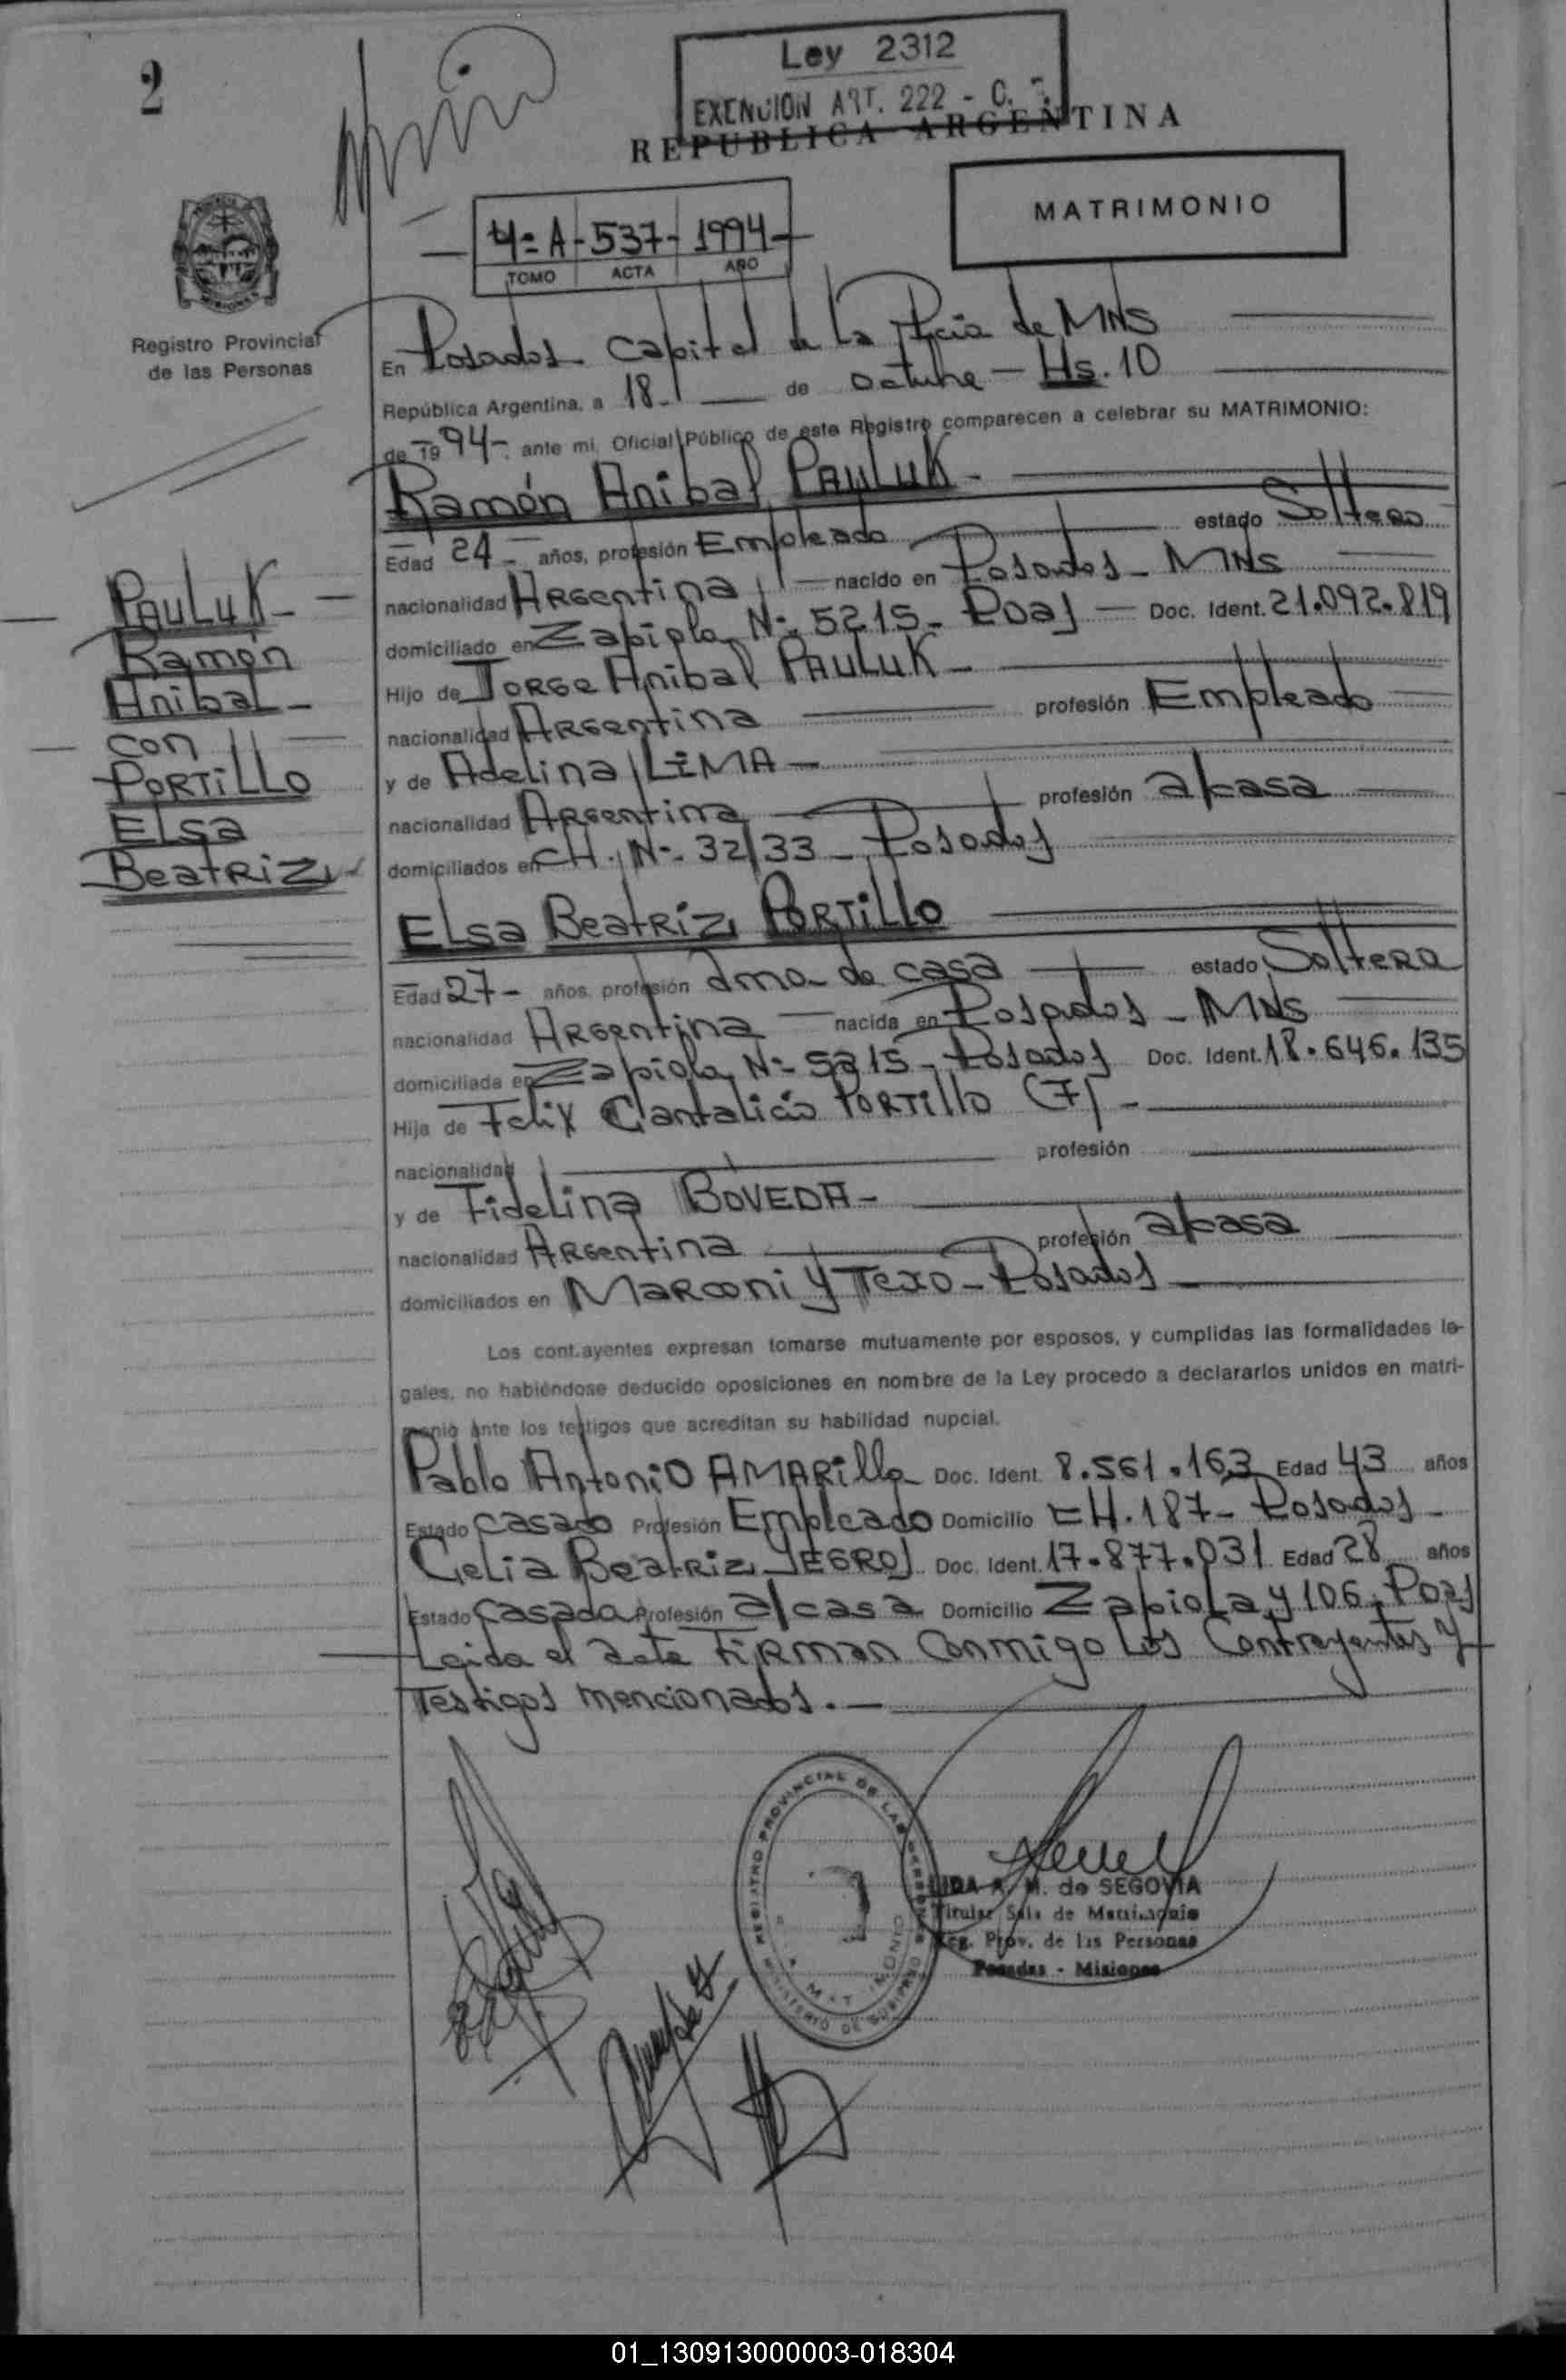 2
Ley 2312
EXENCION ART. 222 - C.
REPUBLICA ARGENTINA
MATRIMONIO
4º A - 537 - 1994
TOMO ACTA AÑO
Registro Provincial
de las Personas
En Posadas Capital de la Pcia de MNS
República Argentina, a 18 de Octubre - Hs. 10
de 1994 - ante mi, Oficial Público de este Registro comparecen a celebrar su MATRIMONIO:
Ramón Anibal PAULUK -
Edad 24 - años, profesión Empleado estado Soltero
nacionalidad Argentina nacido en Posadas - MNS
domiciliado en Zapiola Nº 5215 - Pdas Doc. Ident. 21.092.819
Hijo de Jorge Anibal PAULUK -
nacionalidad Argentina profesión Empleado
y de Adelina LIMA -
nacionalidad Argentina profesión a/casa
domiciliados en CH. Nº 32/33 - Posadas
PAULUK -
Ramón
Anibal -
con
PORTILLO
ELsa
BeatRiz
ELsa BeatRiz PORTiLLO
Edad 27 - años, profesión ama de casa estado Soltera
nacionalidad Argentina nacida en Posadas - MNS
domiciliada en Zapiola Nº 5215 - Posadas Doc. Ident. 18.646.135
Hija de Felix Cantalicio PORTillo (F) -
nacionalidad profesión
y de Fidelina BOVEDA -
nacionalidad Argentina profesión a/casa
domiciliados en Marconi y Texo - Posadas
Los contrayentes expresan tomarse mutuamente por esposos, y cumplidas las formalidades le-
gales, no habiéndose deducido oposiciones en nombre de la Ley procedo a declararlos unidos en matri-
monio ante los testigos que acreditan su habilidad nupcial.
Pablo Antonio AMARilla Doc. Ident. 8.561.163 Edad 43 años
Estado casado Profesión Empleado Domicilio CH. 187 - Posadas -
Celia Beatriz YEGROS Doc. Ident. 17.877.031 Edad 28 años
Estado Casada Profesión a/casa Domicilio Zapiola y 106. Pdas
Leida el acta Firman Conmigo Los Contrayentes y
Testigos mencionados. -
REGISTRO PROVINCIAL DE LAS PERSONAS
MINISTERIO DE GOBIERNO
MATRIMONIO
LIDA A. M. de SEGOVIA
Titular Sala de Matrimonio
Reg. Prov. de las Personas
Posadas - Misiones
01_130913000003-018304